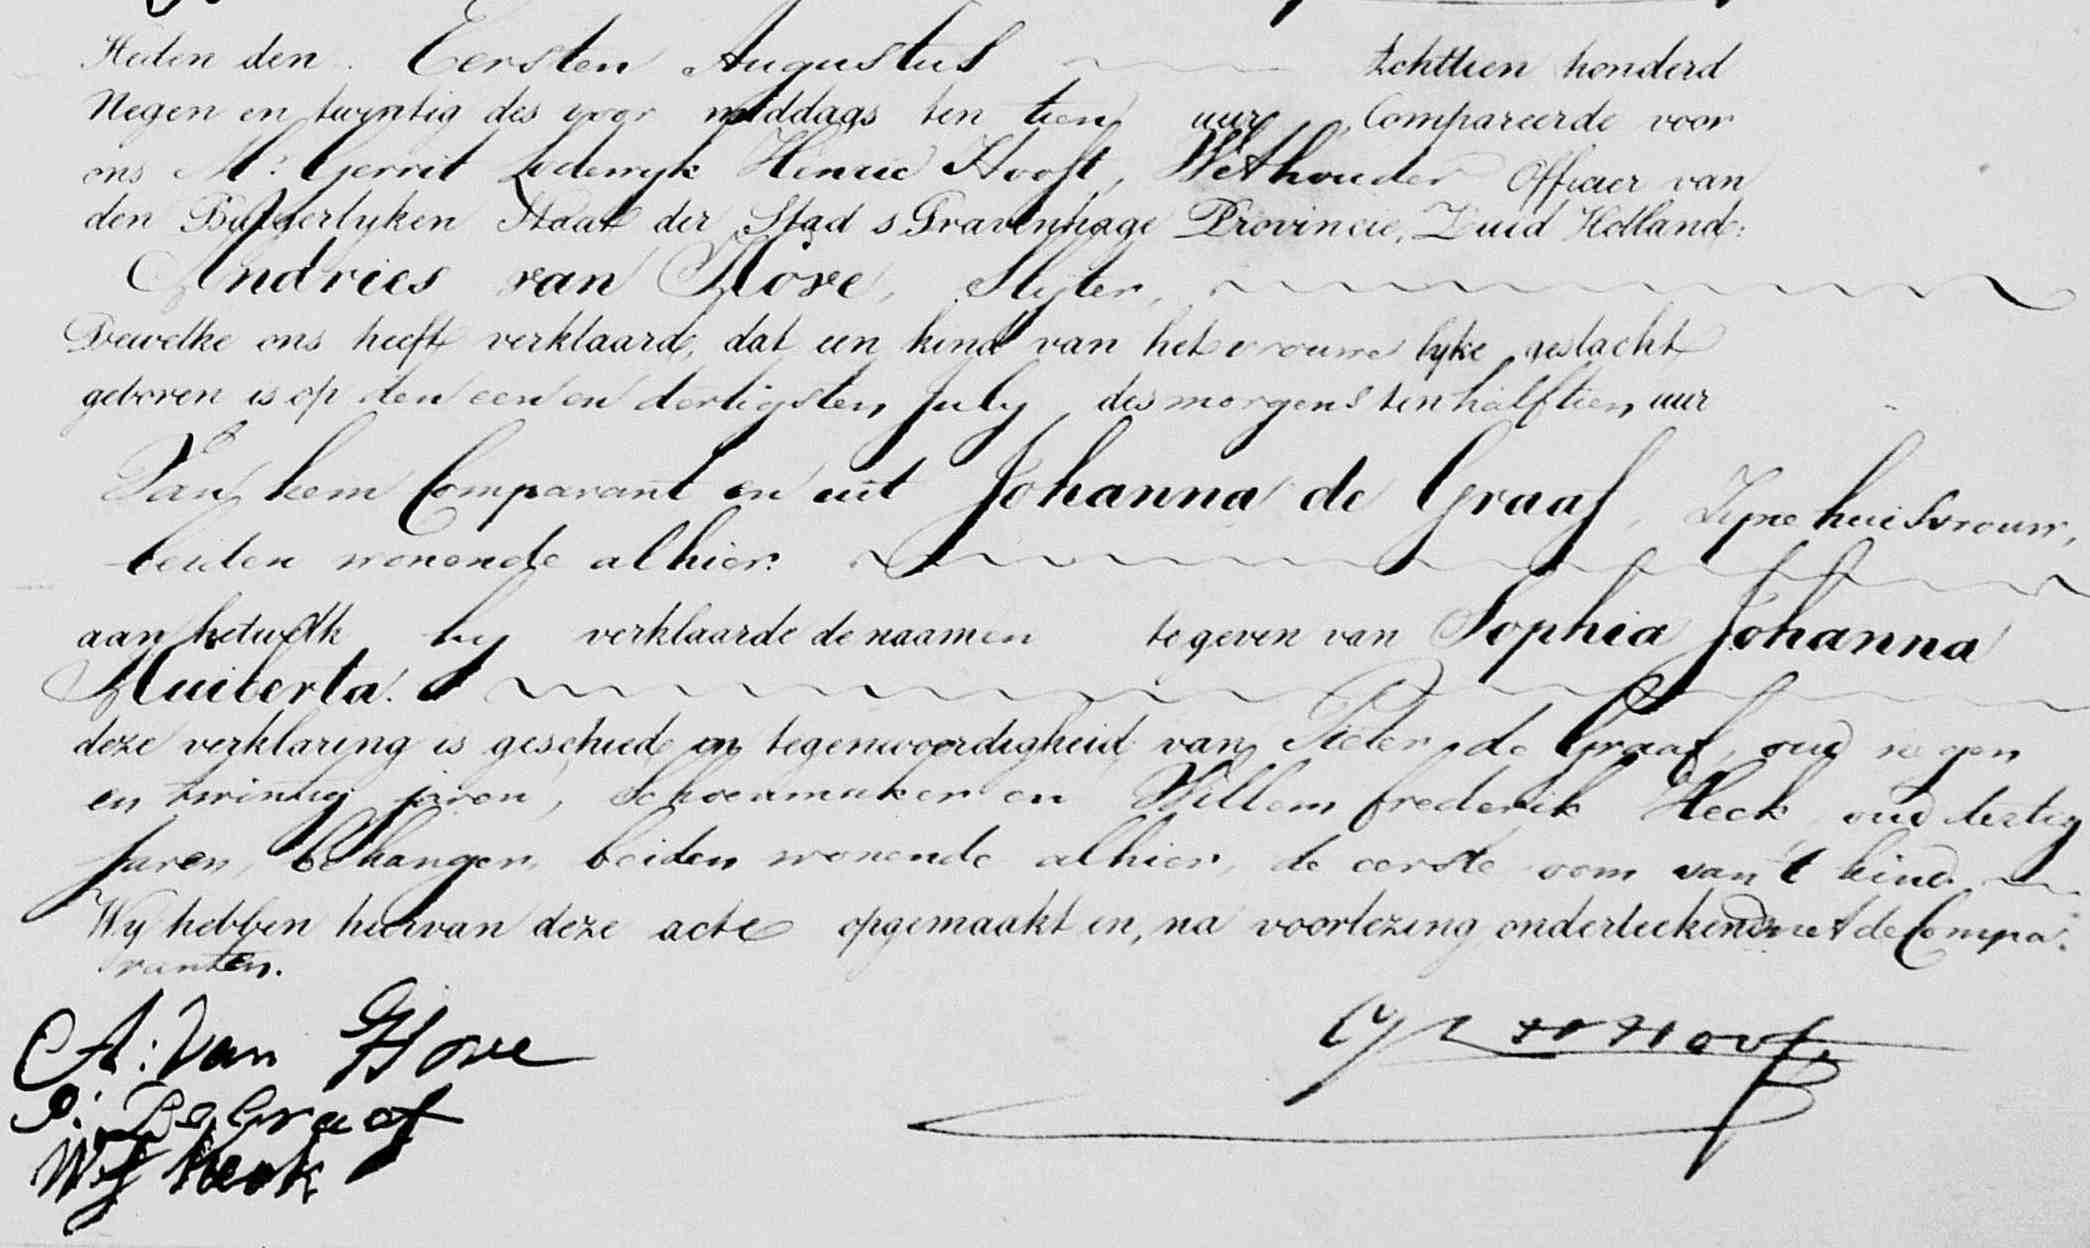 Heden den Eersten Augustus Achttien honderd
Negen en twintig des voor middags ten tien uure, Compareerde voor
ons Mr. Gerrit Lodewyk Henric Hooft, Wethouder Officier van
den Burgerlyken Staat der Stad s Gravenhage Provincie, Zuid Holland:
Andries van Hove, Slyter,
Dewelke ons heeft verklaard, dat een kind van het vrouwelyke geslacht
geboren is op den een en dertigsten July des morgens ten half tien uur
Van hem Comparant en uit Johanna de Graaf, Zyne huisvrouw,
beiden wonende alhier.
aan hetwelk hy verklaarde de naamen te geven van Sophia Johanna
Huiberta.
deze verklaring is geschied in tegenwoordigheid van Pieter de Graaf, oud negen
en twintig jaren, Schoenmaker en Willem frederik Heck, oud dertig
Jaren, behanger, beiden wonende alhier, de eerste oom van 't kind
Wy hebben hiervan deze acte opgemaakt en, na voorlezing onderteekend met de Compa-
ranten.
A: van Hove
P: De Graaf
WF Heck
G L H Hooft